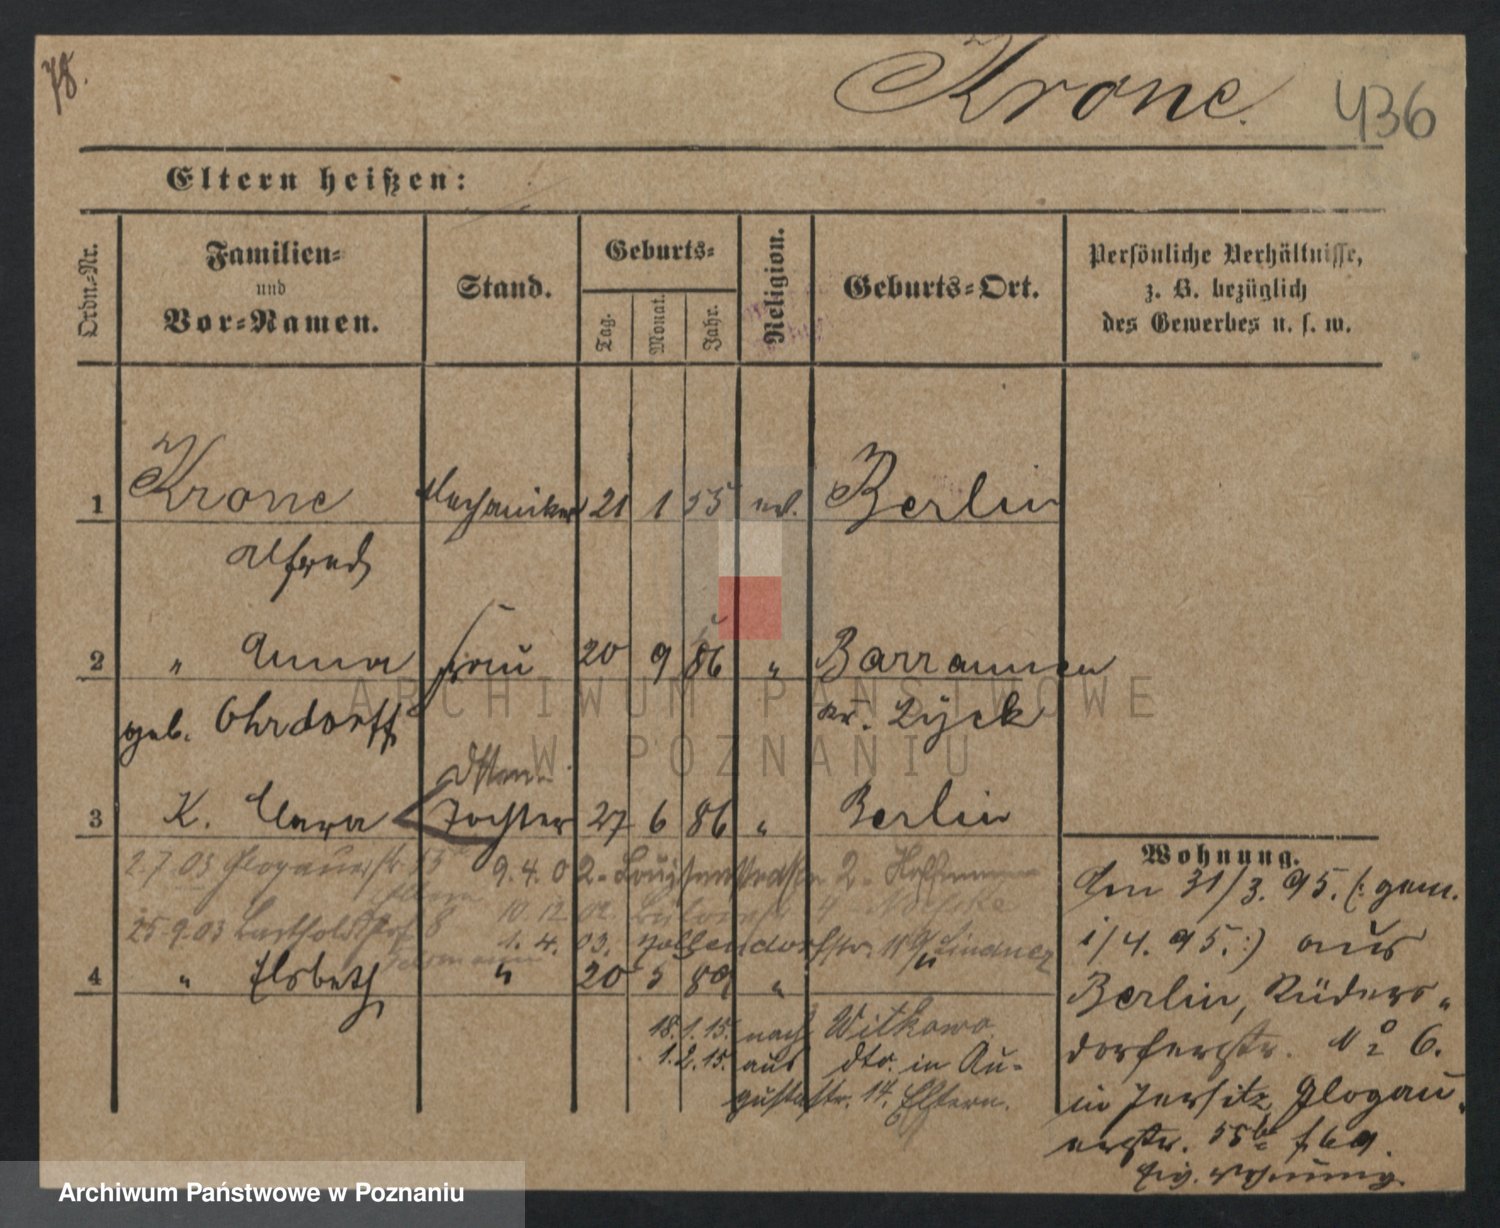 78.
Krone.
436
Eltern heißen:
Ordn.-Nr.
Familien-
und
Vor-Namen.
Stand.
Geburts-
Tag.
Monat.
Jahr.
Religion.
Geburts-Ort.
Persönliche Verhältnisse,
z. B. bezüglich
des Gewerbes u. s. w.
1 Krone Mechaniker 21 1 55 ev. Berlin
Alfred
2 " Anna Frau 20 9 86 " Barrannen
geb. Ohrdorff Kr. Lyck
3 K. Clara Tochter 27 6 86 " Berlin
2.7.03 Glogauerstr. 55 9.4.02. Louisenstr. 2. Hoffmann
25.9.03 8 10.12.02. 4
1.4.03. Hollendorfstr. Lindner
4 " Elsbeth " 20 5 89 "
18.1.15. nach Witkowo
1.2.15. aus dto. in Au-
gustastr. 14. Eltern.
Wohnung.
Den 31/3. 95. (: gem.
1/4. 95. :) aus
Berlin, Rüders-
dorferstr. No 6.
in Jersitz, Glogau-
erstr. 55b
Eig. Wohnung.
ARCHIWUM PAŃSTWOWE
W POZNANIU
Archiwum Państwowe w Poznaniu